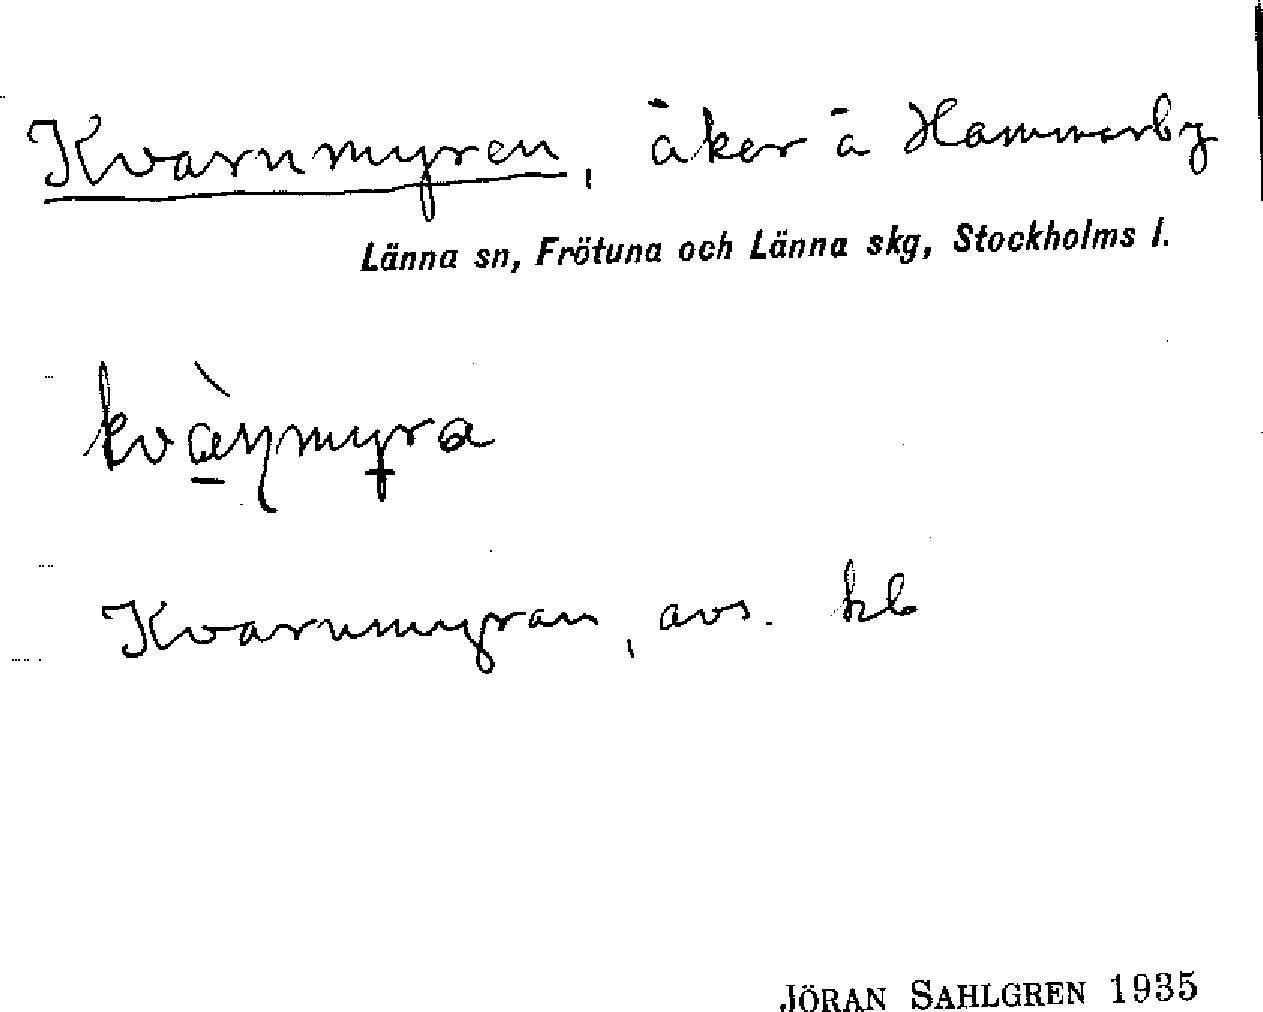 Kvarnmyren, åker å Hammarby
Länna sn, Frötuna och Länna skg, Stockholms l.
kvàɳmyra
Kvarnmyran, avs. hb
JÖRAN SAHLGREN 1935